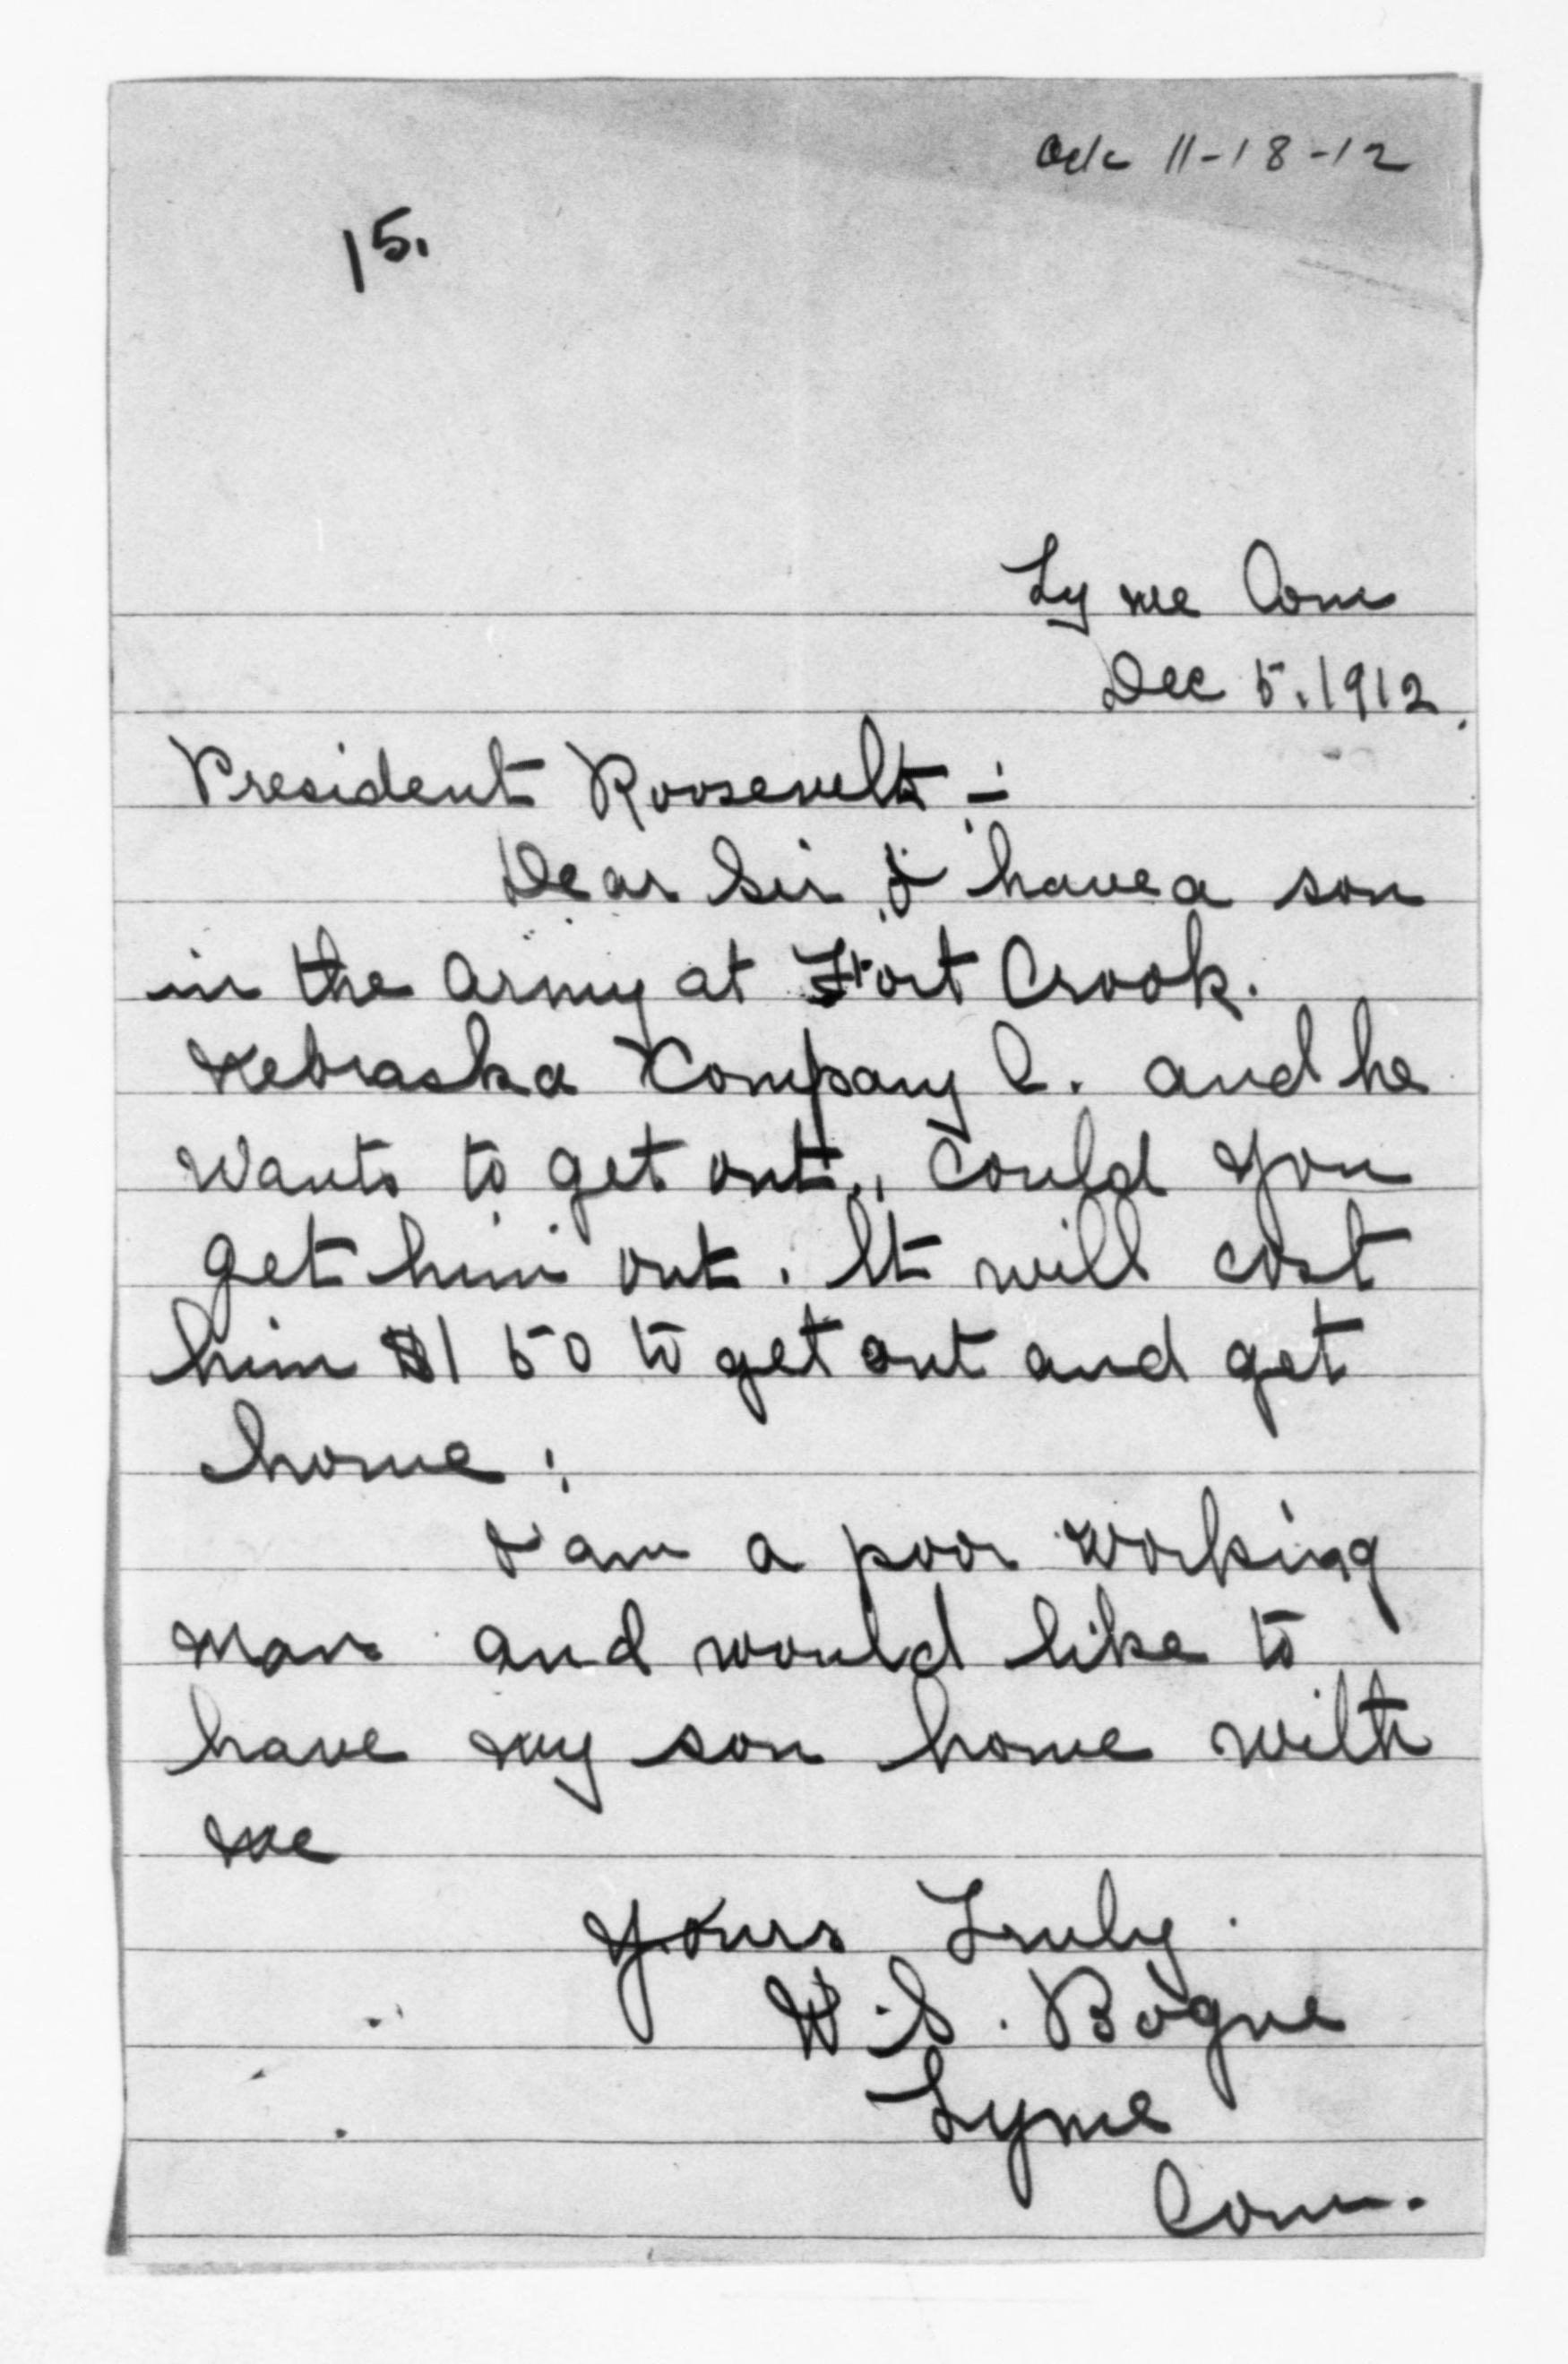 Ack 11-18-12
15.
Lyme Conn
Dec 5. 1912.
President Roosevelt :-
Dear Sir I have a son
in the Army at Fort Crook.
Nebraska Company C. and he
wants to get out., Could you
get him out. It will cost
him $150 to get out and get
home.
I am a poor working
man and would like to
have my son home with
me
Yours Truly.
W. S. Bogue
Lyme
Conn.